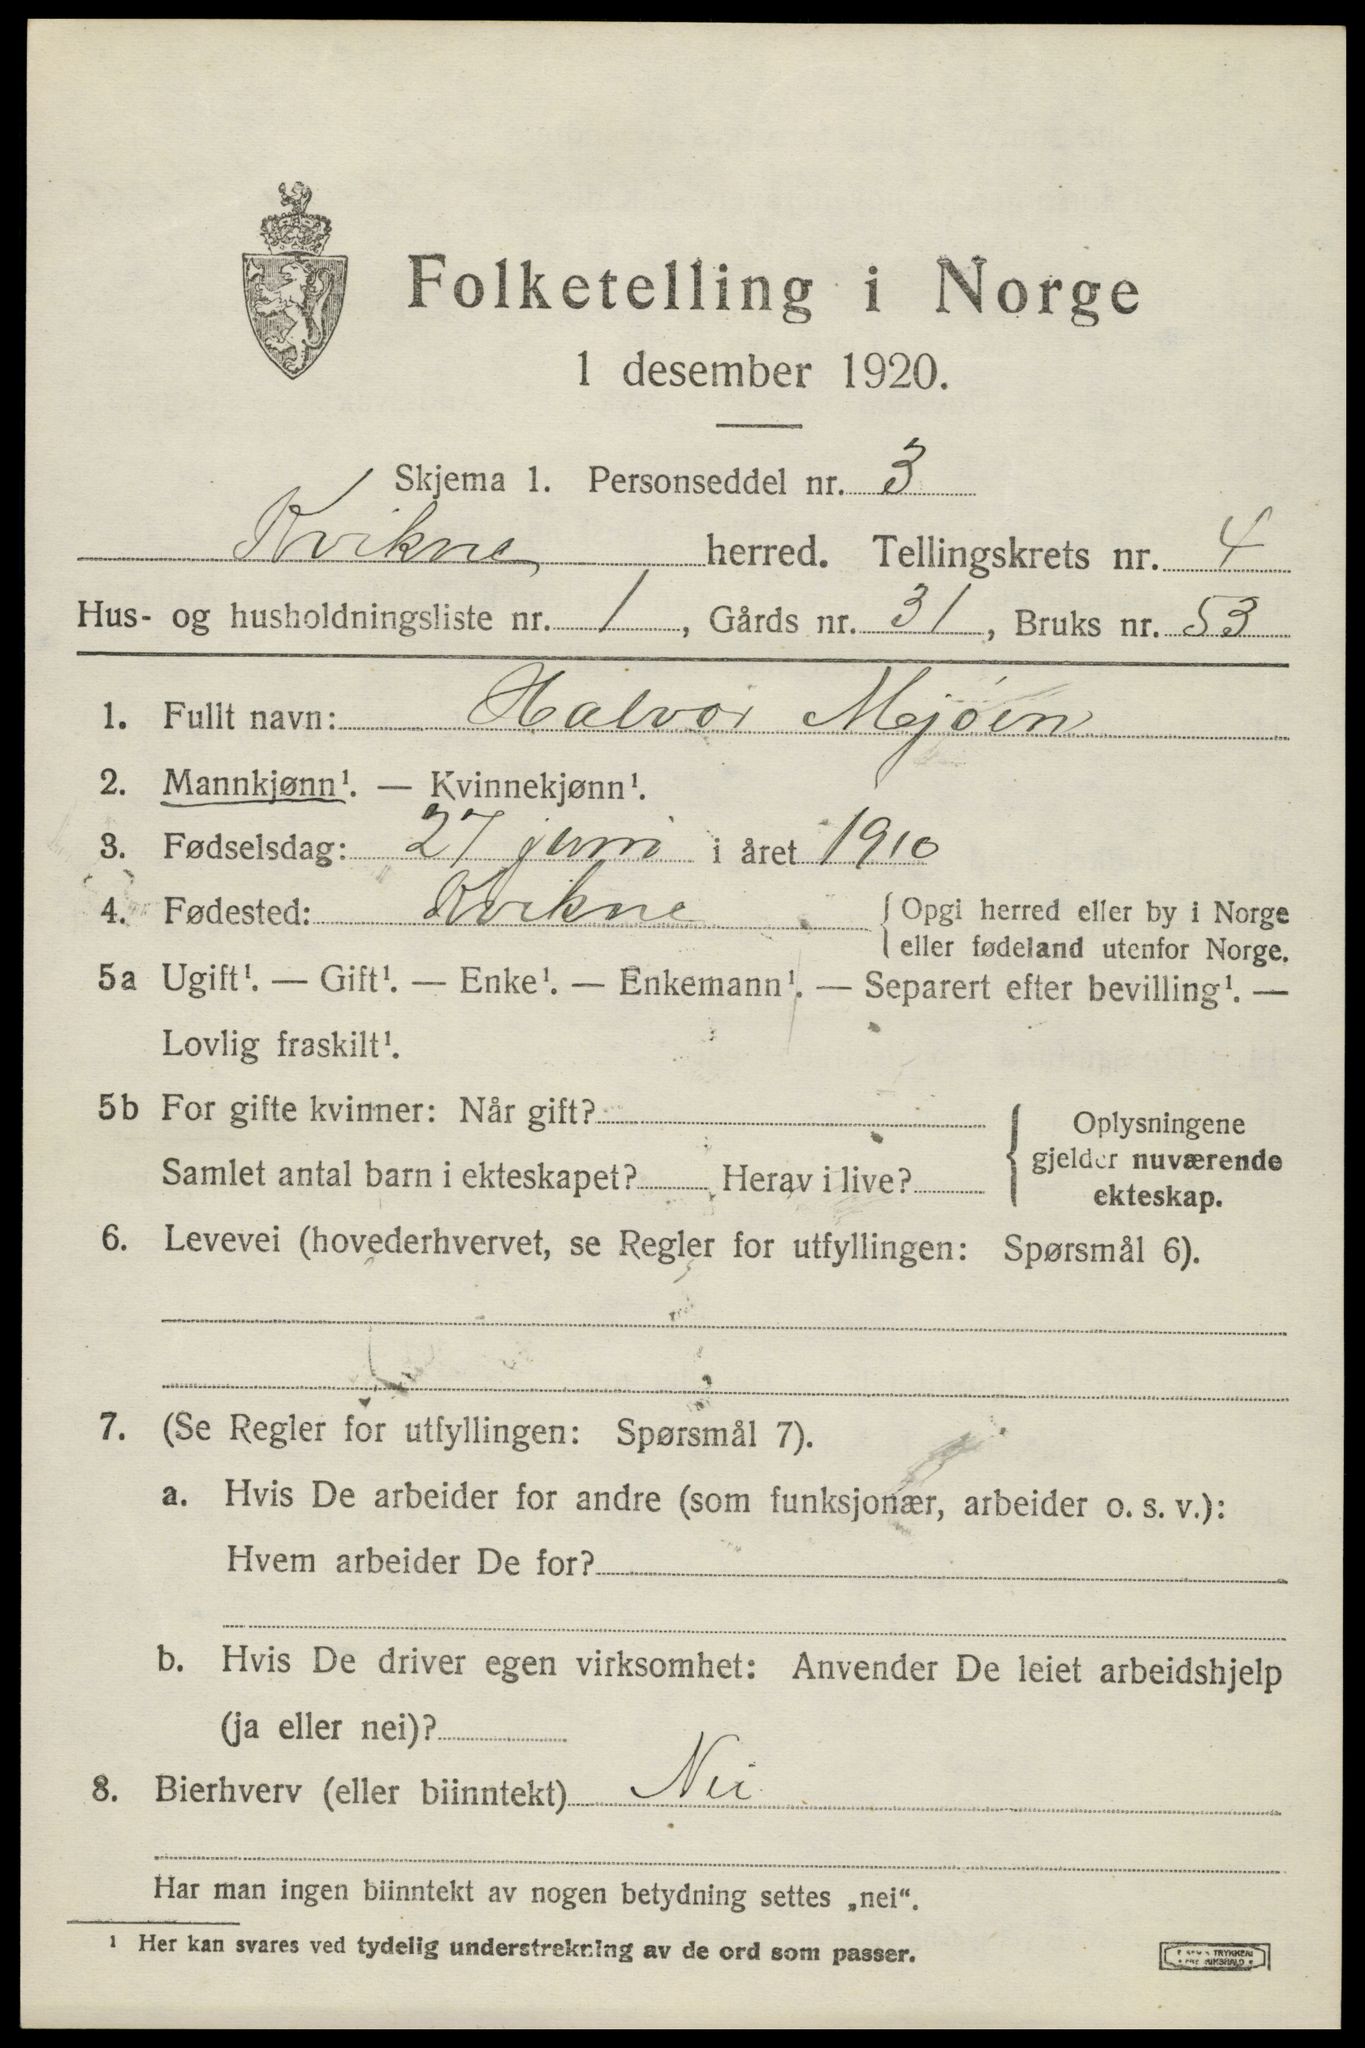 Folketelling i Norge
1 desember 1920.
Skjema 1. Personseddel nr. 3
Kvikne herred. Tellingskrets nr. 4
Hus- og husholdningsliste nr. 1, Gårds nr. 31, Bruks nr. 53
1. Fullt navn: Halvor Mjøen
2. Mannkjønn¹. — Kvinnekjønn¹.
3. Fødselsdag: 27 juni i året 1910
4. Fødested: Kvikne { Opgi herred eller by i Norge
eller fødeland utenfor Norge.
5a Ugift¹. — Gift¹. — Enke¹. — Enkemann¹. — Separert efter bevilling¹. —
Lovlig fraskilt¹.
5b For gifte kvinner: Når gift?
Samlet antal barn i ekteskapet? Herav i live?
{ Oplysningene
gjelder nuværende
ekteskap.
6. Levevei (hovederhvervet, se Regler for utfyllingen: Spørsmål 6).
7. (Se Regler for utfyllingen: Spørsmål 7).
a. Hvis De arbeider for andre (som funksjonær, arbeider o. s. v.):
Hvem arbeider De for?
b. Hvis De driver egen virksomhet: Anvender De leiet arbeidshjelp
(ja eller nei)?
8. Bierhverv (eller biinntekt) Nei
Har man ingen biinntekt av nogen betydning settes „nei“.
¹ Her kan svares ved tydelig understrekning av de ord som passer.